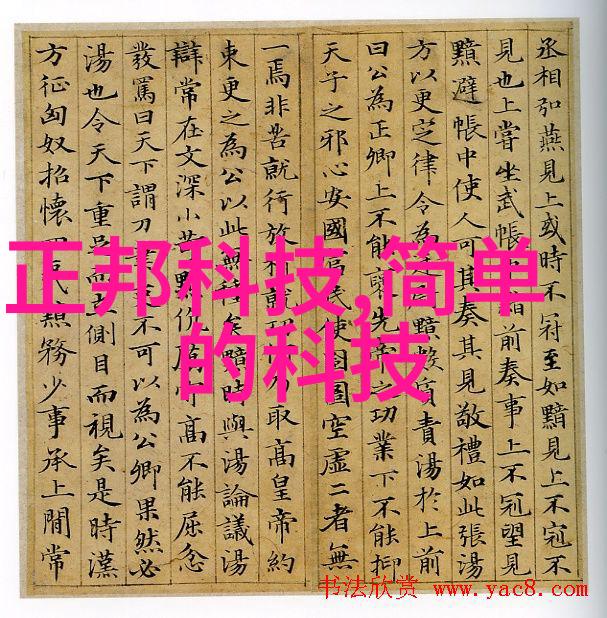 丞相弘燕見上或時不冠至如黯見上不冠不
見也上嘗坐武帳中黯前奏事上不冠望見
黯避帳中使人可其奏其見敬禮如此張湯
方以更定律令為廷黯數質責湯於上前
曰公為正卿上不能褒先帝之功業下不能抑
天子之邪心安國富民使囹圄空虛二者無
一焉非苦就行放析就功取高皇帝約
束更之為公以此無種矣黯時與湯論議湯
辯常在文深小苛黯伉厲守高不能屈忿
發罵曰天下謂刀筆吏不可以為公卿果然必
湯也令天下重足而立側目而視矣是時漢
方征匈奴招懷四夷黯務少事承上間常
正邦科技,简单
的科技
书法欣赏 www.yac8.com